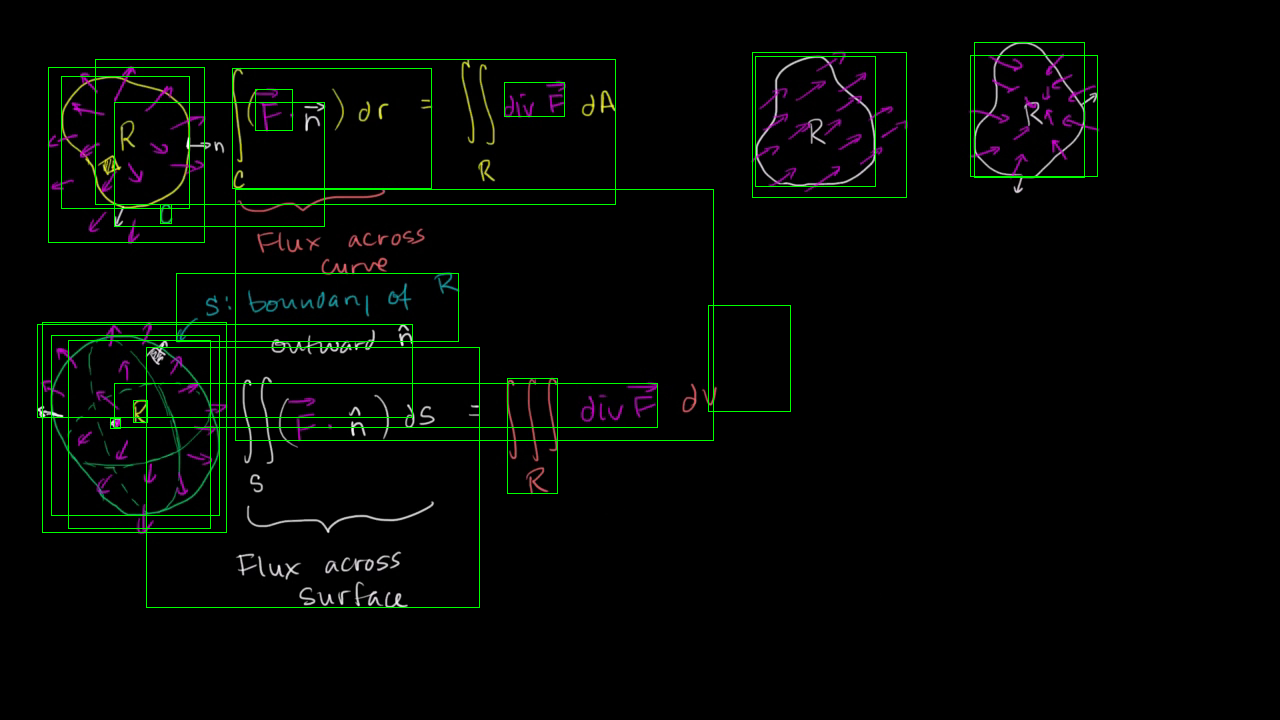 R
n
∫_C (F⃗ · n⃗) dr = ∬_R div F⃗ dA
R
R
Flux across
curve
S: boundary of R
outward n̂
R
∬_S (F⃗ · n̂) dS = ∭_R div F⃗ dV
Flux across
surface